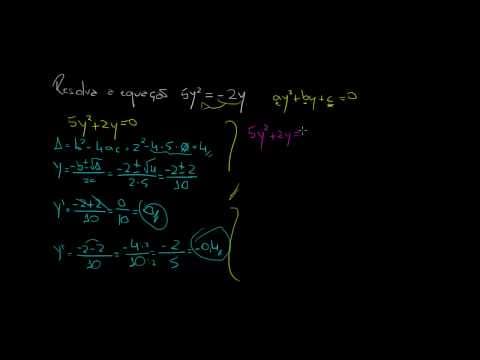 Resolva a equação 5y² = -2y
ay²+by+c=0
5y²+2y=0
Δ = b²-4ac = 2²-4·5·0 = 4
y = (-b±√Δ)/2a = (-2±√4)/(2·5) = (-2±2)/10
y' = (-2+2)/10 = 0/10 = 0
y'' = (-2-2)/10 = (-4:2)/(10:2) = -2/5 = -0,4
5y²+2y=